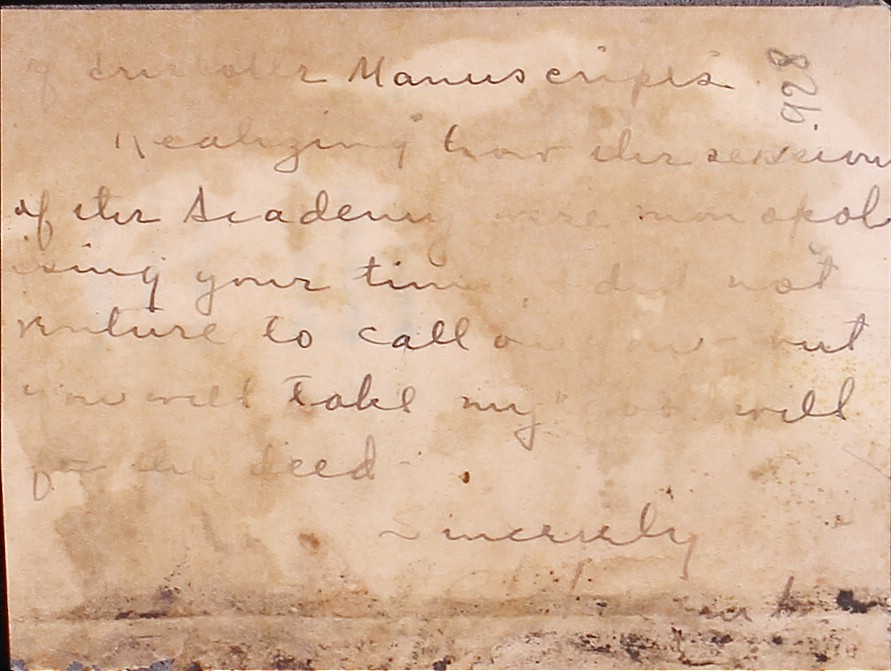 of Manuscripts.
928
Realizing how the sessions
of the Academy were monopol
ising your time, I did not
venture to call on you - but
you will take my good will
for the deed -
Sincerely